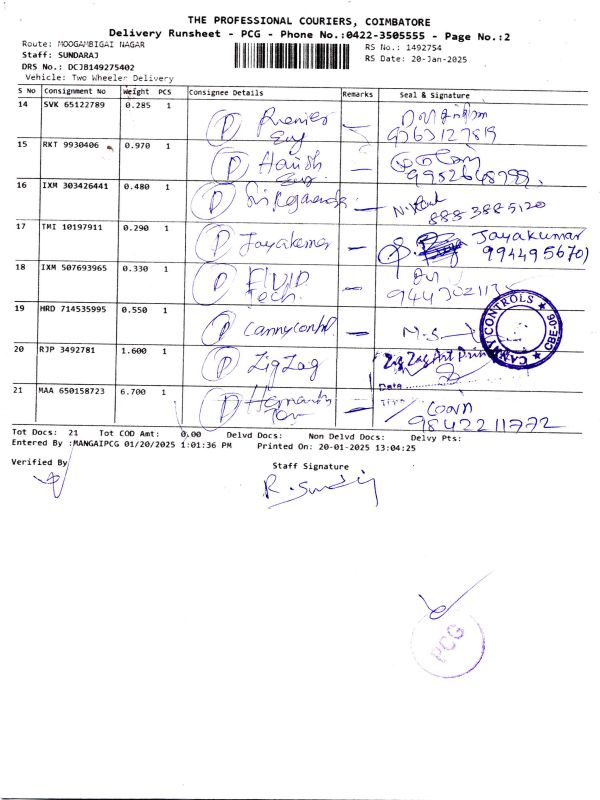 THE PROFESSIONAL COURIERS, COIMBATORE
Delivery Runsheet - PCG - Phone No.:0422-3505555 - Page No.:2
Route: MOOGAMBIGAI NAGAR
RS No.: 1492754
Staff: SUNDARAJ
RS Date: 20-Jan-2025
DRS No.: DCJB149275402
Vehicle: Two Wheeler Delivery
S No Consignment No Weight PCS Consignee Details Remarks Seal & Signature
14 SVK 65122789 0.285 1 P Premier
Eng 9363127819
15 RKT 9930406 0.970 1 P Harish
Eng
16 IXM 303426441 0.480 1 P Sri 8883885120
17 TMI 10197911 0.290 1 P Jayakumar Jayakumar
9944956701
18 IXM 507693965 0.330 1 P FLUID
Tech.
19 HRD 714535995 0.550 1 P Cannycontrol M.S
CANNY CONTROLS ★ CBE-06 ★
20 RJP 3492781 1.600 1 P ZigZag Zig Zag Art Prin
Date
21 MAA 650158723 6.700 1 P
9842211772
Tot Docs: 21 Tot COD Amt: 0.00 Delvd Docs: Non Delvd Docs: Delvy Pts:
Entered By :MANGAIPCG 01/20/2025 1:01:36 PM Printed On: 20-01-2025 13:04:25
Verified By
Staff Signature
PCG